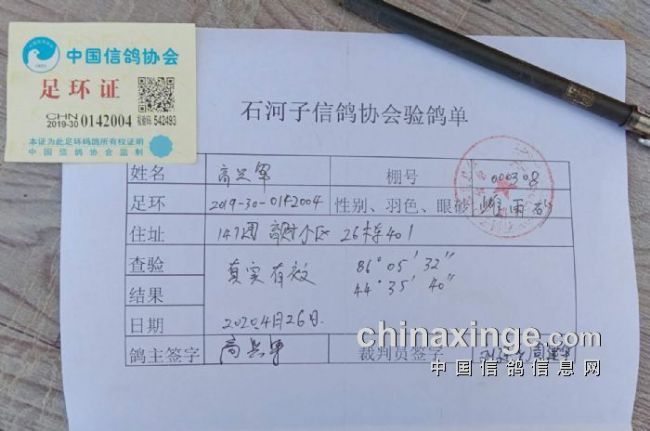 中国信鸽协会
足环证
CHN
2019-30 0142004 校验码 542493
本证为此足环码鸽所有权证明
中国信鸽协会监制
石河子信鸽协会验鸽单
姓名 棚号 000308
足环 2019-30-0142004 性别、羽色、眼砂 雄 雨 砂
住址 147团 小区 26栋401
查验 真实有效 86°05′32″
结果 44°35′40″
日期 2020.4月26日
鸽主签字 裁判员签字
chinaxinge.com
中国信鸽信息网